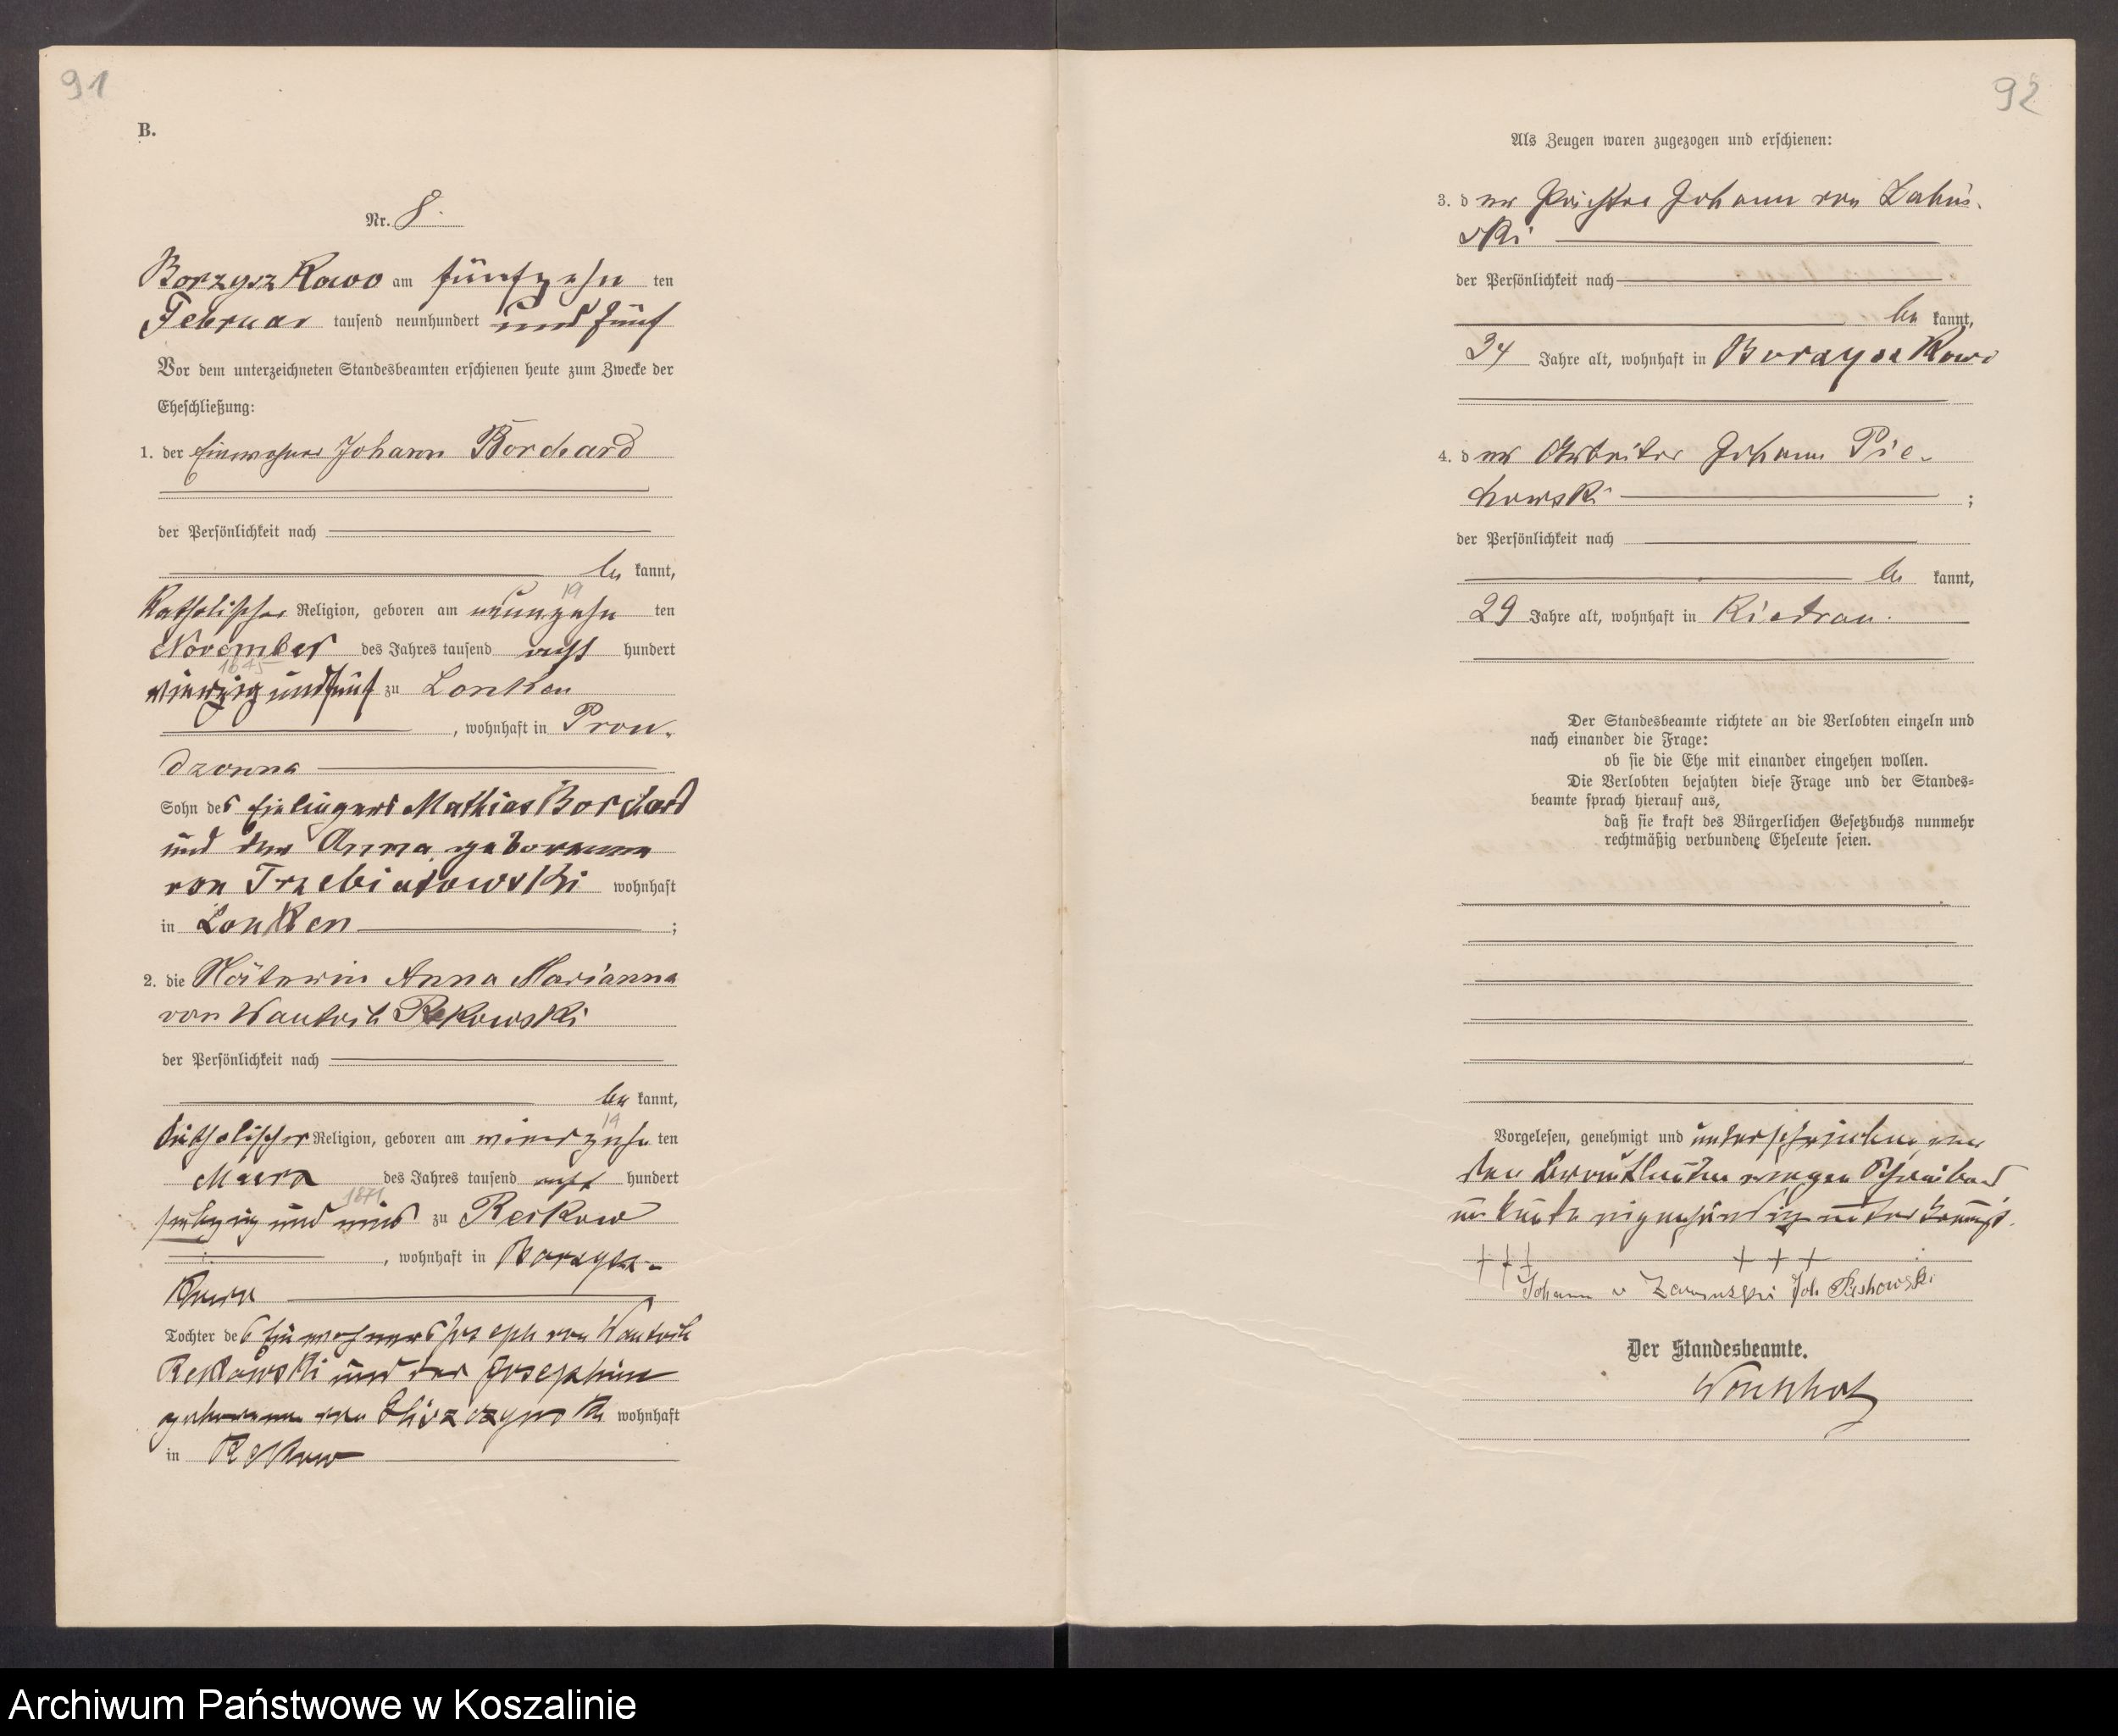 91
B.
Nr. 8.
Borzyszkowo am fünfzehn ten
Februar tausend neunhundert und fünf
Vor dem unterzeichneten Standesbeamten erschienen heute zum Zwecke der
Eheschließung:
1. der Einwohner Johann Borchard
der Persönlichkeit nach
be kannt,
19
katholischer Religion, geboren am neunzehn ten
November des Jahres tausend acht hundert
1845
vierzig und fünf zu Lonken
, wohnhaft in Pron-
dzonna
Sohn des Einliegers Mathias Borchard
und der Anna geborenen
von Trzebiatowski wohnhaft
in Lonken ;
2. die Näterin Anna Marianna
von Wantoch Rekowski
der Persönlichkeit nach
be kannt,
14
katholischer Religion, geboren am vierzehn ten
Maerz des Jahres tausend acht hundert
1871
siebzig und eins zu Reckow
, wohnhaft in Borzysz-
kowo
Tochter des Einwohners Joseph von Wantoch
Rekowski und der Josephine
geborenen von wohnhaft
in Reckow
92
Als Zeugen waren zugezogen und erschienen:
3. der Johann von
ski
der Persönlichkeit nach
be kannt,
34 Jahre alt, wohnhaft in Borzyszkowo
4. der Arbeiter Johann Pie-
chowski ;
der Persönlichkeit nach
be kannt,
29 Jahre alt, wohnhaft in Kiedrau.
Der Standesbeamte richtete an die Verlobten einzeln und
nach einander die Frage:
ob sie die Ehe mit einander eingehen wollen.
Die Verlobten bejahten diese Frage und der Standes-
beamte sprach hierauf aus,
daß sie kraft des Bürgerlichen Gesetzbuchs nunmehr
rechtmäßig verbundene Eheleute seien.
Vorgelesen, genehmigt und unterschrieben, von
den Brautleuten wegen Schreibens
unkunde eigenhändig unterkreuzt.
+++ +++
Johann v Joh Piechowski
Der Standesbeamte.
Archiwum Państwowe w Koszalinie